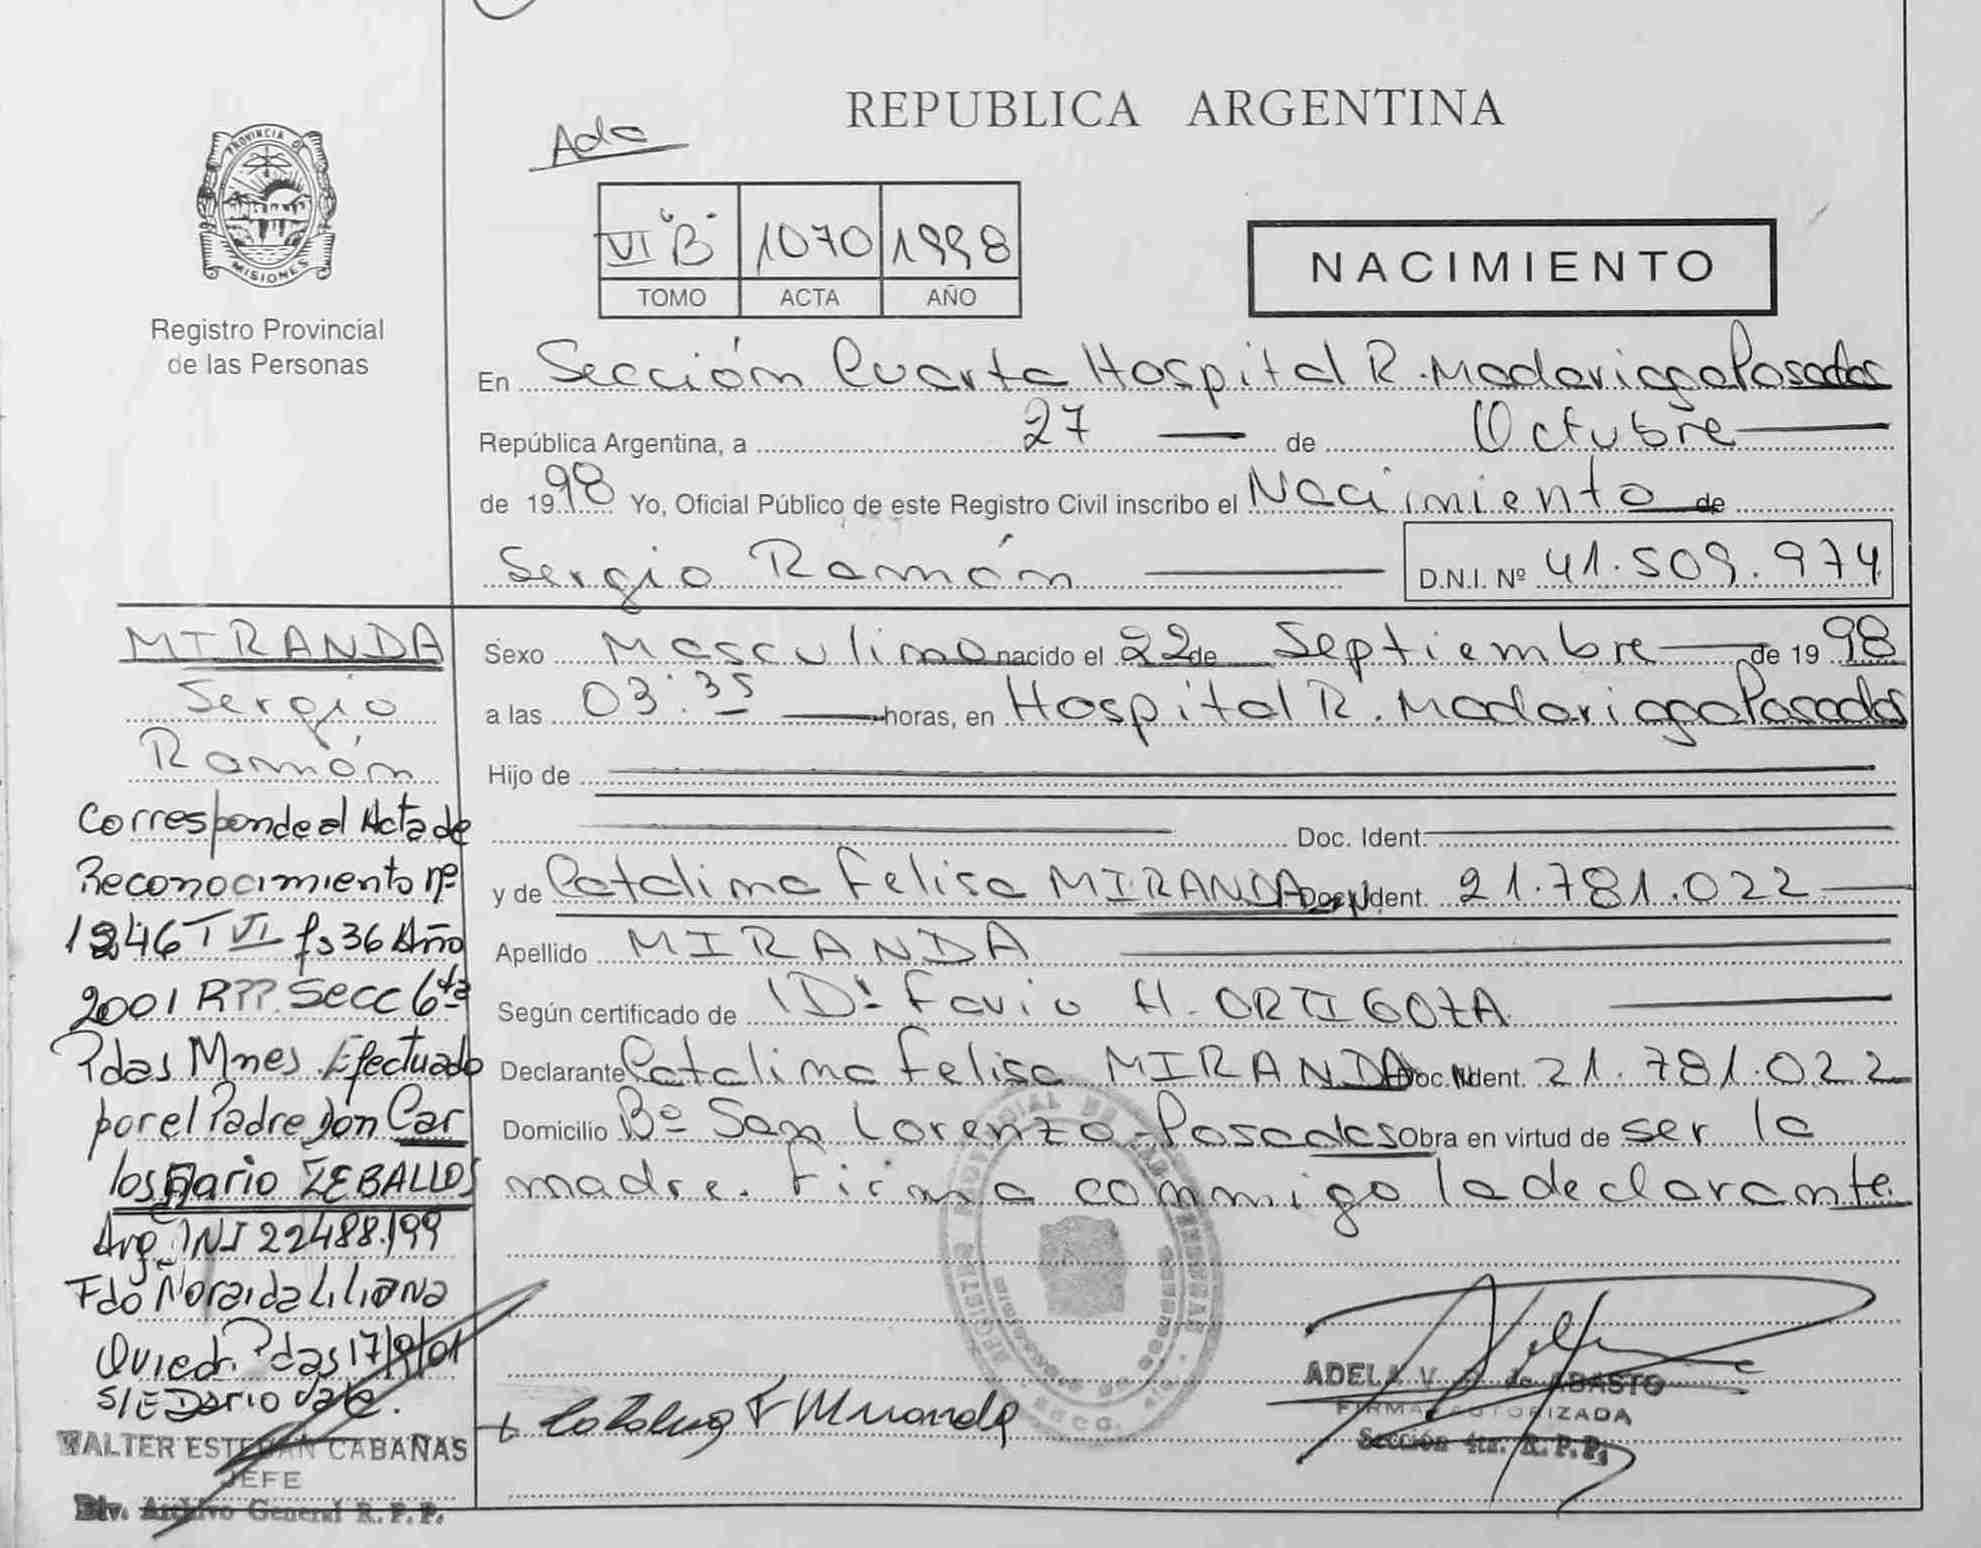 Adc
REPUBLICA ARGENTINA
PROVINCIA DE
MISIONES
Registro Provincial
de las Personas
VI "B" 1070 1998
TOMO ACTA AÑO
NACIMIENTO
En Sección Cuarta Hospital R. Madariaga Posadas
República Argentina, a 27 de Octubre
de 1998 Yo, Oficial Público de este Registro Civil inscribo el Nacimiento de
Sergio Ramón D.N.I. Nº 41.509.974
Sexo Masculino nacido el 22 de Septiembre de 1998
a las 03:35 horas, en Hospital R. Madariaga Posadas
Hijo de
Doc. Ident.
y de Catalina Felisa MIRANDA Doc. Ident. 21.781.022
Apellido MIRANDA
Según certificado de Dr. Favio H. ORTIGOZA
Declarante Catalina Felisa MIRANDA Doc. Ident. 21.781.022
Domicilio Bº San Lorenzo-Posadas Obra en virtud de ser la
madre. Firma conmigo la declarante
MIRANDA
Sergio
Ramón
Corresponde al Acta de
Reconocimiento nº
1246 T VI fs 36 Año
2001 RPP. Secc 6ta
Pdas Mnes. Efectuado
por el Padre Don Car
los Dario ZEBALLOS
Arg. DNI 22488.199
Fdo Noraida Liliana
Oviedo. Pdas 17/9/01
S/E Dario Vale.
WALTER ESTEBAN CABAÑAS
JEFE
Div. Archivo General R. P. P.
Catalina F Miranda
ADELA V. de ABASTO
FIRMA AUTORIZADA
Sección 4ta. R. P. P.